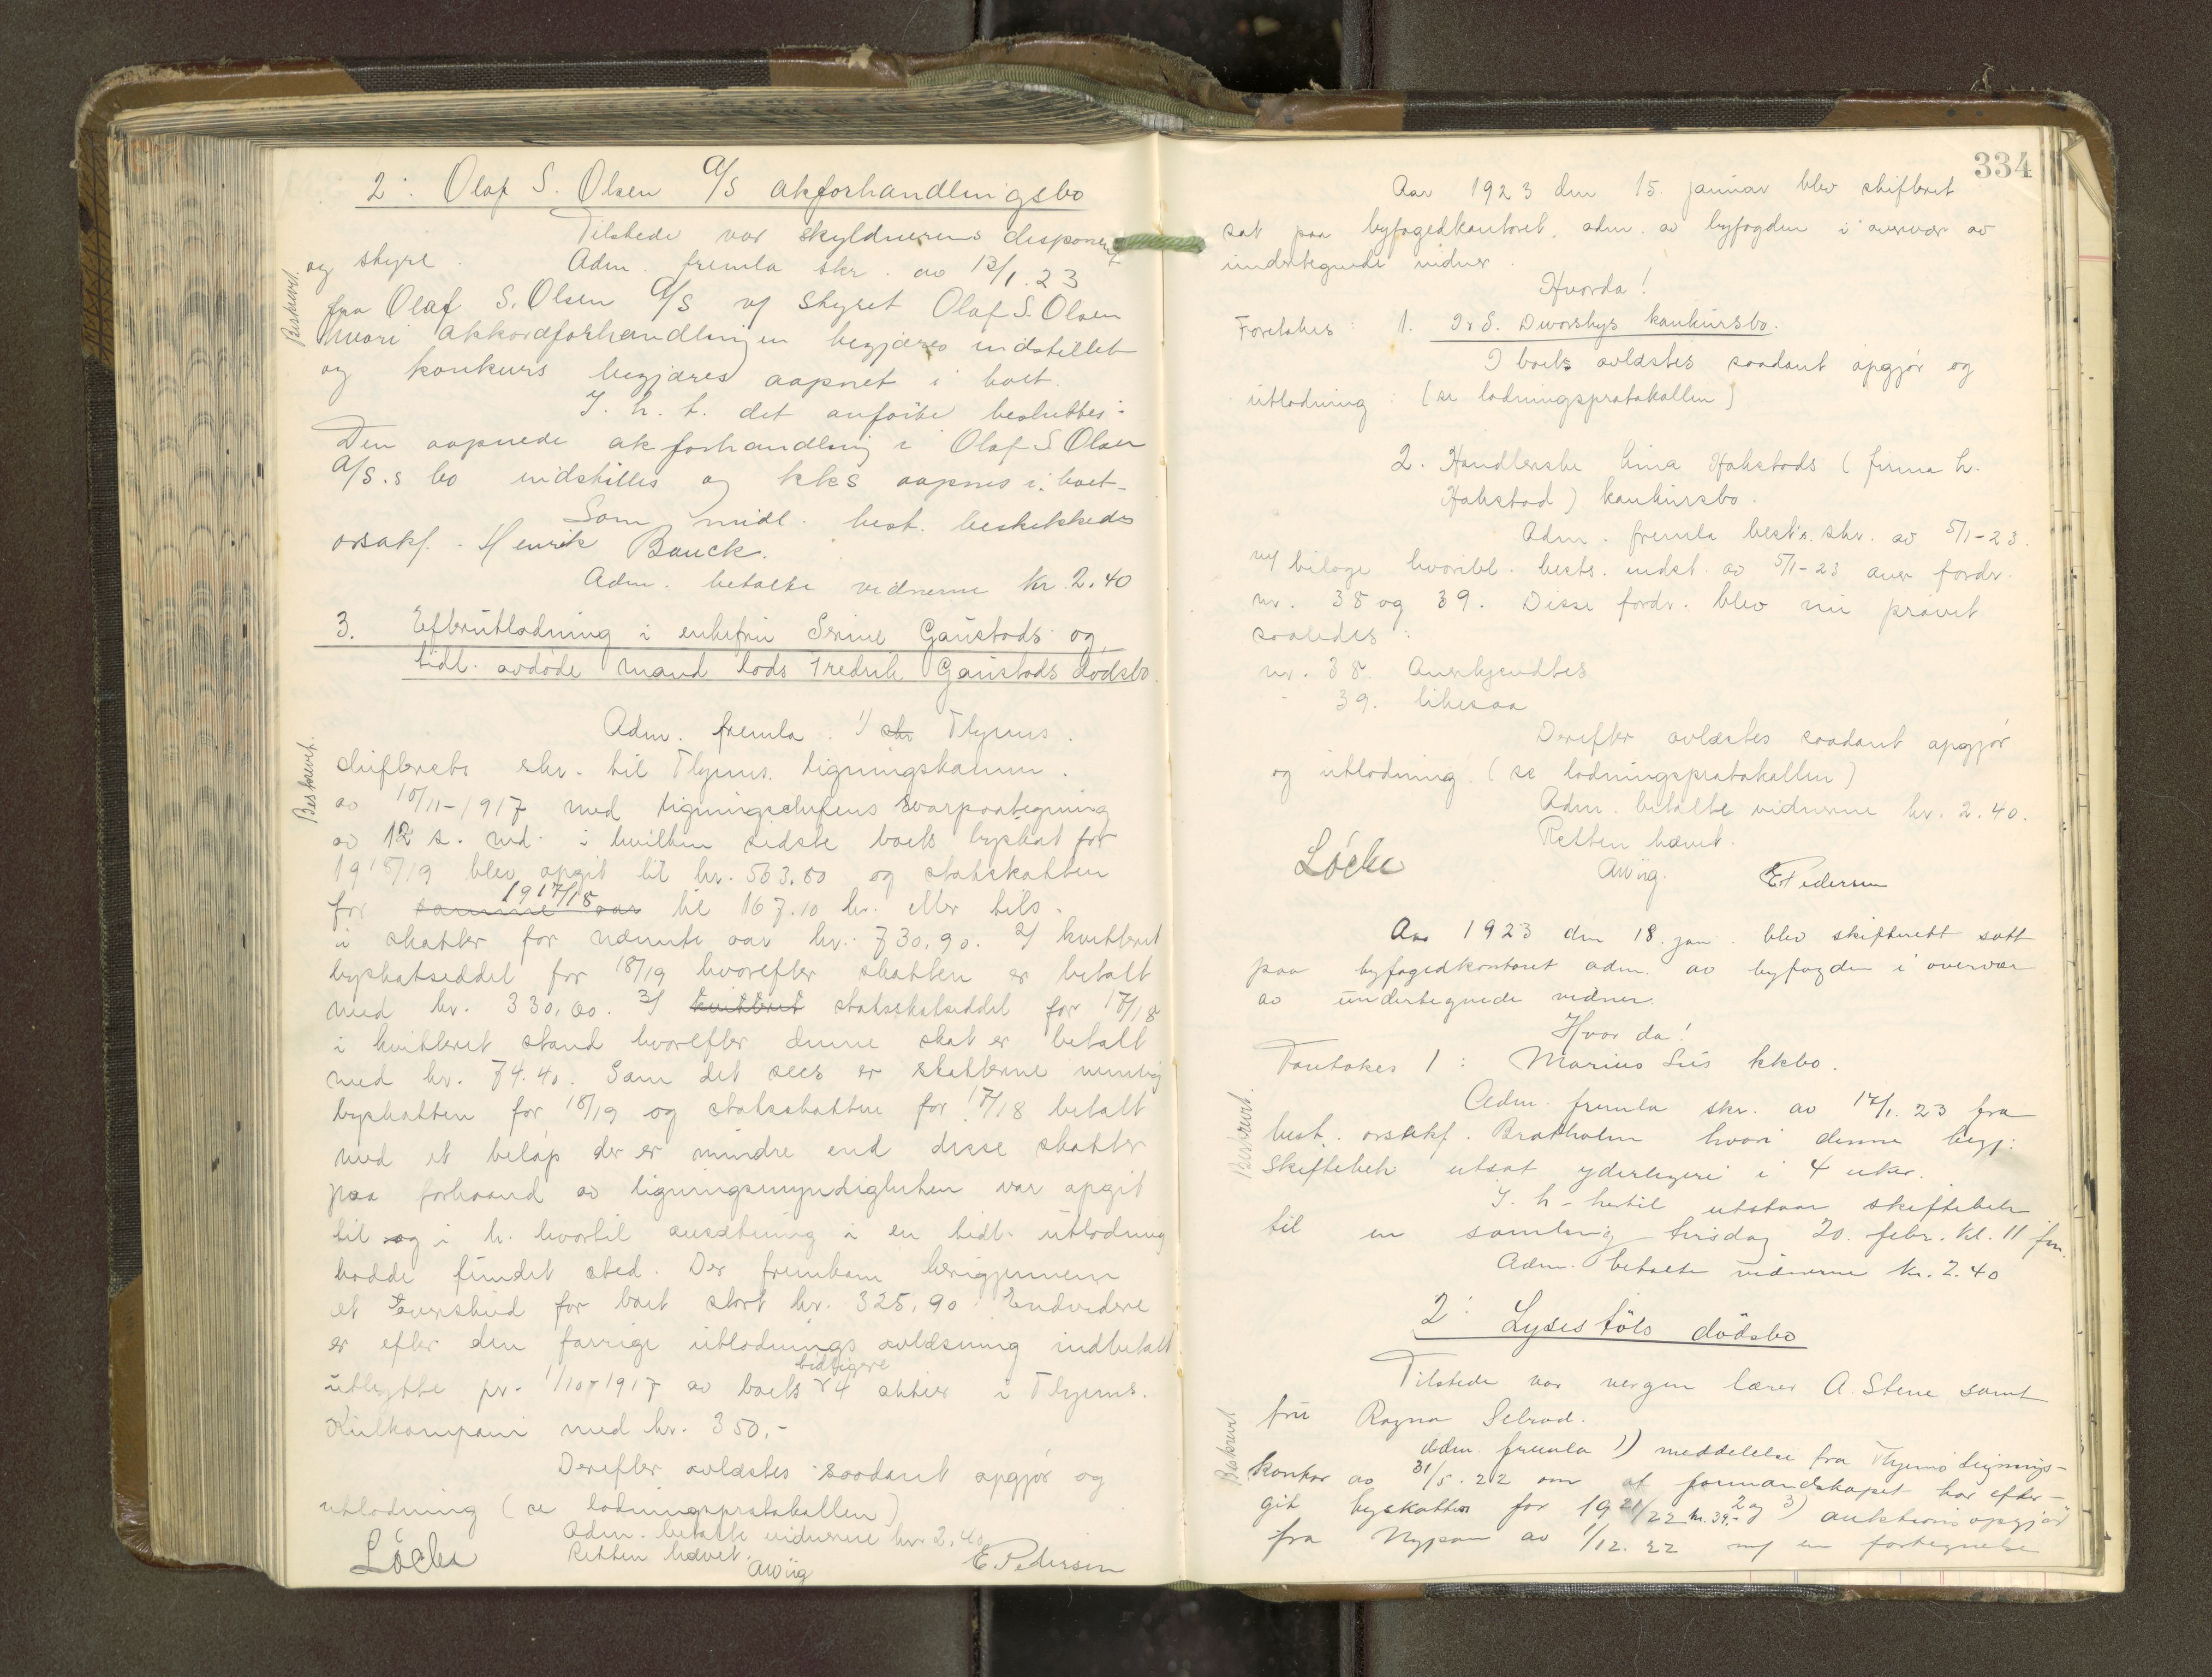 2: Olaf S. Olsen A/S akforhandlingsbo
Tilstede var skyldnerens disponent
og styre. Adm. fremla skr. av 13/1.23
Beskrevet.
fra Olaf S. Olsen A/S v/ styret Olaf S. Olsen
hvori akkordforhandlingen begjæres indstillet
og konkurs begjæres aapnet i boet.
I. h. t. det anførte besluttes:
Den aapnede akforhandling i Olaf S Olsen
A/S.s bo indstilles og kks aapnes i boet.
Som midl. best. beskikkedes
orsakf. Henrik Bauck.
Adm. betalte vidnerne kr 2.40
3. Efterutlodning i enkefru Serine Gaustads og
tidl. avdøde mand lods Fredrik Gaustads dødsbo.
Adm. fremla. 1) skr Thjems.
Beskrevet.
skifterets skr. til Thjems. ligningskamm.
av 10/11-1917 med ligningschefens svarpaategning
av 12 s. md. i hvilken sidste boets byskat for
1918/19 blev opgit til kr. 563.80 og statskatten
for samme aar 1917/18 til 167.10 kr. eller tils.
i skatter for nævnte aar kr. 730,90. 2/ kvitteret
byskatseddel for 18/19 hvorefter skatten er betalt
med kr. 330,60. 3/ kvitteret statsskatseddel for 17/18
i kvitteret stand hvorefter denne skat er betalt
med kr. 74.40. Som det sees er skatterne nemlig
byskatten for 18/19 og statsskatten for 17/18 betalt
med et beløp der er mindre end disse skatter
paa forhaand av ligningsmyndigheten var opgit
til og i h. hvortil ansætning i en tidl. utlodning
hadde fundet sted. Der fremkom herigjennem
et overskud for boet stort kr. 325,90. Endvidere
er efter den forrige utlodnings avlæsning indbetalt
utbytte pr. 1/10-1917 av boets tidligere 4 aktier i Thjems.
Kulkompani med kr. 350.-
Derefter avlæstes saadant opgjør og
utlodning (se lodningsprotokollen)
Adm. betalte vidnerne kr. 2,40
Retten hævet.
Løchen AWiig E. Pedersen
334
Aar 1923 den 15. januar blev skifteret
sat paa byfogedkontoret. adm. av byfogden i overvær av
undertegnede vidner.
Hvorda!
Foretokes: 1. I & S. Dworskys konkursbo.
I boets avlæstes saadant opgjør og
utlodning: (se lodningsprotokollen)
2. Handlerske Lina Hakstads (firma L.
Hakstad) konkursbo.
Adm. fremla best's. skr. av 5/1-23.
m/ bilage hvoribl. bests. indst. av 5/1-23 over fordr.
nr. 38 og 39. Disse fordr. blev nu prøvet
saaledes:
nr. 38. Anerkjendtes
- 39. likesaa
Derefter avlæstes saadant opgjør
og utlodning. (se lodningsprotokollen)
Adm. betalte vidnerne kr. 2.40.
Retten hævet.
Løchen AWiig. E. Pedersen
Aar 1923 den 18. jan. blev skifterett satt
paa byfogedkontoret adm. av byfogden i overvær
av undertegnede vidner.
Hvor da!
Foretokes 1: Marius Lies kkbo.
Beskrevet.
Adm. fremla skr. av 17/1.23 fra
best. orsakf. Bratholm hvori denne begj:
skiftebeh utsat yderligere i 4 uker.
I. h - hertil utstaar skiftebeh
til en samling tirsdag 20. febr. kl. 11 fm.
Adm. betalte vidnerne kr. 2.40
2: Lyses føls dødsbo
Tilstede var vergen lærer A. Stene samt
fru Ragna Selrod.
Beskrevet
Adm. fremla 1) meddelelse fra Thjems lignings-
kontor av 31/5.22 om at formandskapet har efter-
git byskatten for 1921/22 kr. 39,- 2 og 3) auktionsopgjør
fra Nypan av 1/12.22 m/ en fortegnelse